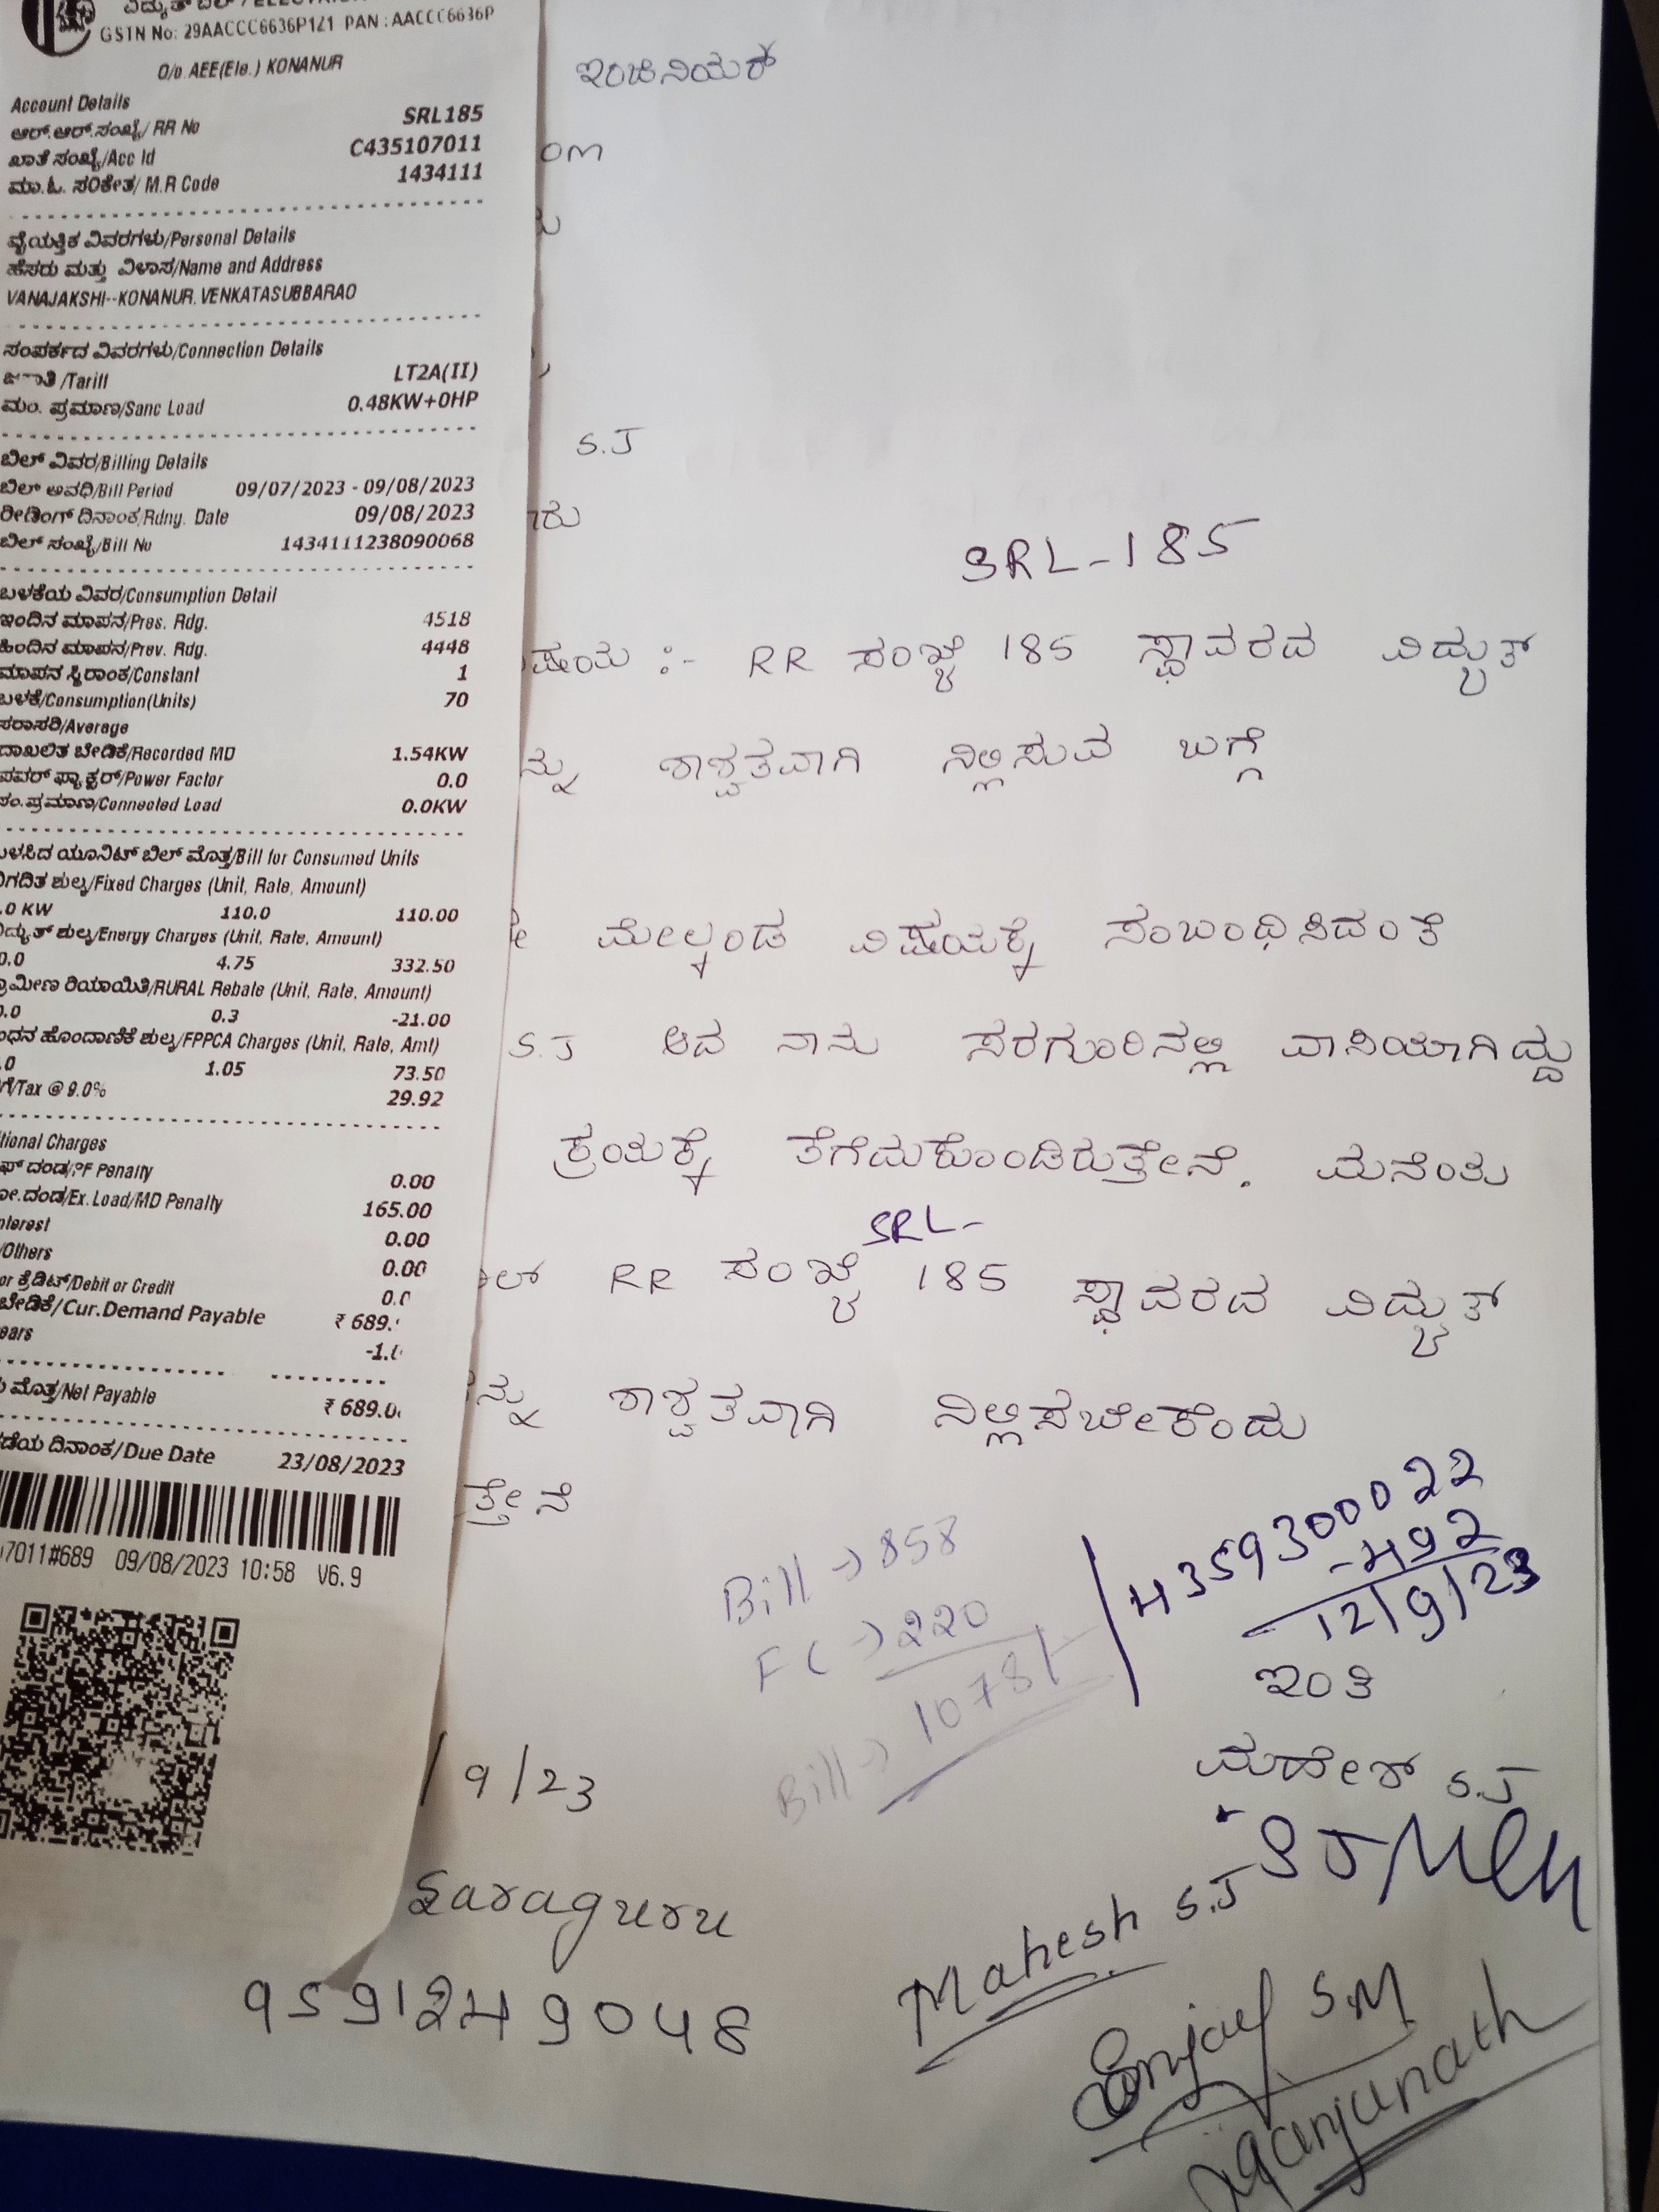 GSTN No: 29AACCC6636P1Z1 PAN : AACCC6636P
O/o AEE(Ele.) KONANUR
Account Details
ಆರ್.ಆರ್.ಸಂಖ್ಯೆ/ RR No SRL185
ಖಾತೆ ಸಂಖ್ಯೆ/Acc Id C435107011
ಮಾ.ಓ. ಸಂಕೇತ/ M.R Code 1434111
ವೈಯಕ್ತಿಕ ವಿವರಗಳು/Personal Details
ಹೆಸರು ಮತ್ತು ವಿಳಾಸ/Name and Address
VANAJAKSHI--KONANUR. VENKATASUBBARAO
ಸಂಪರ್ಕದ ವಿವರಗಳು/Connection Details
/Tariff LT2A(II)
ಮಂ. ಪ್ರಮಾಣ/Sanc Load 0.48KW+0HP
ಬಿಲ್ ವಿವರ/Billing Details
ಬಿಲ್ ಅವಧಿ/Bill Period 09/07/2023 - 09/08/2023
ರೀಡಿಂಗ್ ದಿನಾಂಕ/Rdng. Date 09/08/2023
ಬಿಲ್ ಸಂಖ್ಯೆ/Bill No 1434111238090068
ಬಳಕೆಯ ವಿವರ/Consumption Detail
ಇಂದಿನ ಮಾಪನ/Pres. Rdg. 4518
ಹಿಂದಿನ ಮಾಪನ/Prev. Rdg. 4448
ಮಾಪನ ಸ್ಥಿರಾಂಕ/Constant 1
ಬಳಕೆ/Consumption(Units) 70
ಸರಾಸರಿ/Average
ದಾಖಲಿತ ಬೇಡಿಕೆ/Recorded MD 1.54KW
ಪವರ್ ಫ್ಯಾಕ್ಟರ್/Power Factor 0.0
ಸಂ.ಪ್ರಮಾಣ/Connected Load 0.0KW
ಬಳಸಿದ ಯೂನಿಟ್ ಬಿಲ್ ಮೊತ್ತ/Bill for Consumed Units
ನಿಗದಿತ ಶುಲ್ಕ/Fixed Charges (Unit, Rate, Amount)
.0 KW 110.0 110.00
ವಿದ್ಯುತ್ ಶುಲ್ಕ/Energy Charges (Unit, Rate, Amount)
0.0 4.75 332.50
ಗ್ರಾಮೀಣ ರಿಯಾಯಿತಿ/RURAL Rebate (Unit, Rate, Amount)
0.0 0.3 -21.00
ಇಂಧನ ಹೊಂದಾಣಿಕೆ ಶುಲ್ಕ/FPPCA Charges (Unit, Rate, Amt)
.0 1.05 73.50
/Tax @ 9.0% 29.92
tional Charges
ಫ್ ದಂಡ/PF Penalty 0.00
ದಂಡ/Ex.Load/MD Penalty 165.00
nterest 0.00
/Others 0.00
or ಕ್ರೆಡಿಟ್/Debit or Credit 0.0
ಬೇಡಿಕೆ/Cur.Demand Payable ₹ 689.
ears -1.
ಮೊತ್ತ/Net Payable ₹ 689.0
ಕಡೆಯ ದಿನಾಂಕ/Due Date 23/08/2023
7011#689 09/08/2023 10:58 V6.9
ಇಂಜಿನಿಯರ್
om
S.J
ರು
SRL-185
ಷಯ :- RR ಸಂಖ್ಯೆ 185 ಸ್ಥಾವರದ ವಿದ್ಯುತ್
ನ್ನು ಶಾಶ್ವತವಾಗಿ ನಿಲ್ಲಿಸುವ ಬಗ್ಗೆ
ಮೇಲ್ಕಂಡ ವಿಷಯಕ್ಕೆ ಸಂಬಂಧಿಸಿದಂತೆ
S.J ಆದ ನಾನು ಸರಗೂರಿನಲ್ಲಿ ವಾಸಿಯಾಗಿದ್ದು
ಕ್ರಯಕ್ಕೆ ತೆಗೆದುಕೊಂಡಿರುತ್ತೇನೆ. ಮನೆಯ
SRL-
ಲ್ RR ಸಂಖ್ಯೆ 185 ಸ್ಥಾವರದ ವಿದ್ಯುತ್
ನ್ನು ಶಾಶ್ವತವಾಗಿ ನಿಲ್ಲಿಸಬೇಕೆಂದು
ತ್ತೇನೆ
Bill → 858
FC → 220
Bill → 1078/
43593000022
-492
12/9/23
ಇಂತಿ
ಮಹೇಶ್ S.J
/9/23
Saraguru
Mahesh S.J
9591249048
S.M